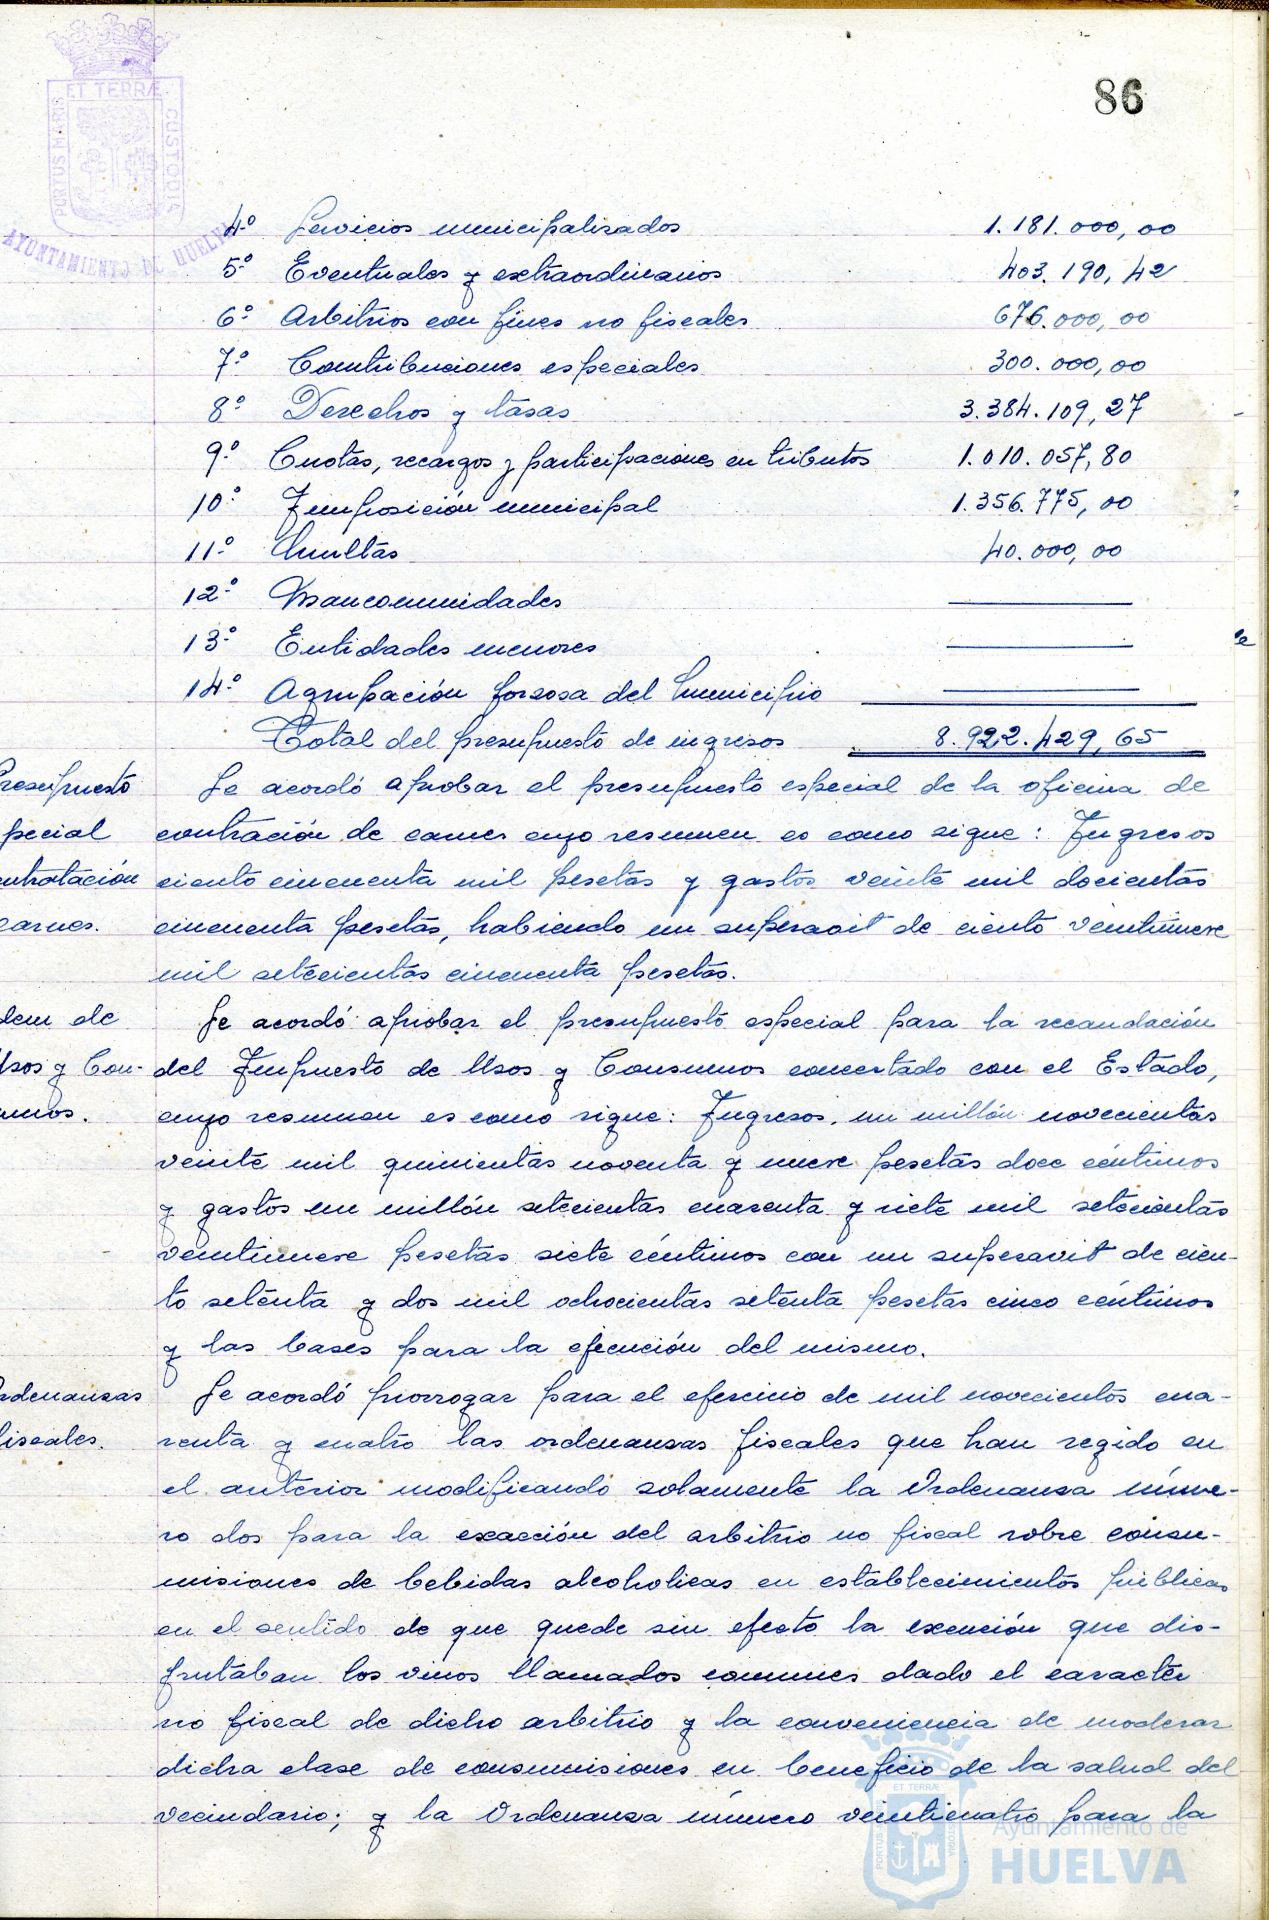 86
ET TERRÆ
PORTUS MARIS
CUSTODIA
AYUNTAMIENTO DE HUELVA
4º Servicios municipalizados 1.181.000,00
5º Eventuales y extraordinarios 403.190,42
6º Arbitrios con fines no fiscales 676.000,00
7º Contribuciones especiales 300.000,00
8º Derechos y tasas 3.384.109,27
9º Cuotas, recargos y participaciones en tributos 1.010.057,80
10º Imposición municipal 1.356.775,00
11º Multas 40.000,00
12º Mancomunidades
13º Entidades menores
14º Agrupación forzosa del Municipio
Total del presupuesto de ingresos 8.922.429,65
resupuesto Se acordó aprobar el presupuesto especial de la oficina de
pecial contración de carnes cuyo resumen es como sigue: Ingresos
ntratación ciento cincuenta mil pesetas y gastos veinte mil docientas
carnes. cincuenta pesetas, habiendo un superavit de ciento veintinueve
mil setecientas cincuenta pesetas.
dem de Se acordó aprobar el presupuesto especial para la recaudación
Usos y Con- del Impuesto de Usos y Consumos concertado con el Estado,
umos. cuyo resumen es como sigue: Ingresos, un millón novecientas
veinte mil quinientas noventa y nueve pesetas doce céntimos
y gastos un millón setecientas cuarenta y siete mil setecientas
veintinueve pesetas siete céntimos con un superavit de cien-
to setenta y dos mil ochocientas setenta pesetas cinco céntimos
y las bases para la ejecución del mismo.
rdenanzas Se acordó prorrogar para el ejercicio de mil novecientos cua-
fiscales. renta y cuatro las ordenanzas fiscales que han regido en
el anterior modificando solamente la Ordenanza núme-
ro dos para la exacción del arbitrio no fiscal sobre consu-
misiones de bebidas alcoholicas en establecimientos públicos
en el sentido de que quede sin efecto la exención que dis-
frutaban los vinos llamados comunes dado el caracter
no fiscal de dicho arbitrio y la conveniencia de moderar
dicha clase de consumisiones en beneficio de la salud del
vecindario; y la Ordenanza número veinticuatro para la
Ayuntamiento de
HUELVA